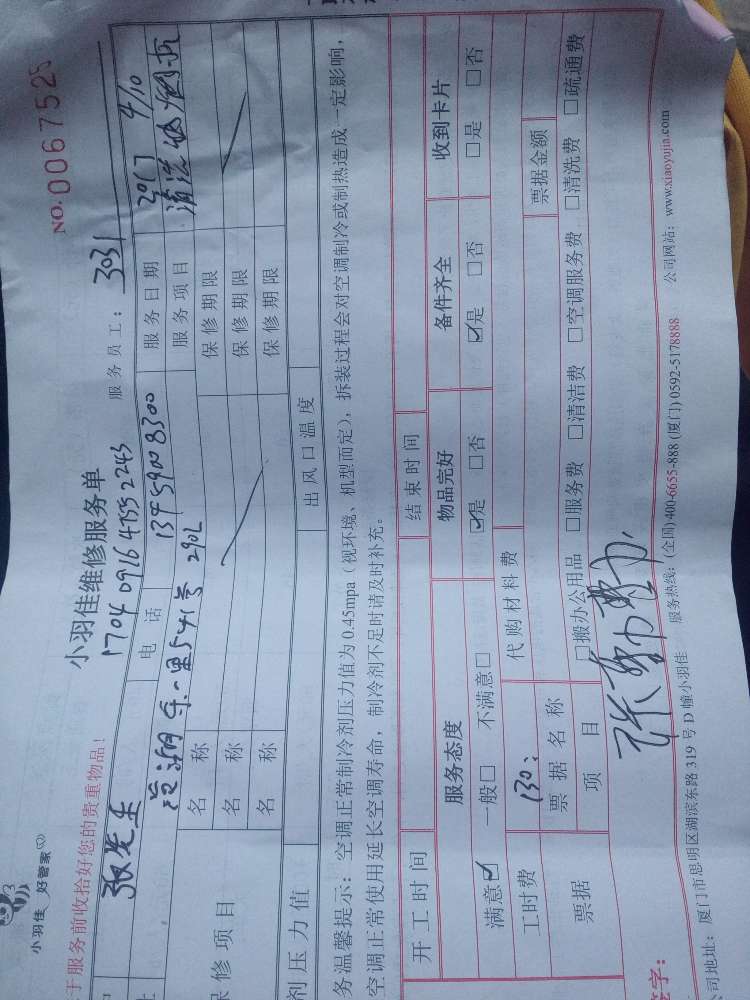 小羽佳 好管家
NO.0067525
于服务前收拾好您的贵重物品!
小羽佳维修服务单
1704091647552243
服务员工: 3031
张先生
电 话 13959008300
服务日期 2017 4/10
541号 290L
服务项目 清洗
保修项目
名 称
保修期限
名 称
保修期限
名 称
保修期限
剂压力值
出风口温度
务温馨提示: 空调正常制冷剂压力值为0.45mpa(视环境、机型而定), 拆装过程会对空调制冷或制热造成一定影响,
空调正常使用延长空调寿命, 制冷剂不足时请及时补充。
开工时间
结束时间
服务态度
物品完好
备件齐全
收到卡片
满意☑ 一般□ 不满意□
☑是 □否
☑是 □否
□是 □否
工时费 130
代购材料费
票据
票据名称
票据金额
项 目
□搬办公用品 □服务费 □清洁费 □空调服务费 □清洗费 □疏通费
签字:
司地址: 厦门市思明区湖滨东路319号D幢小羽佳 服务热线: (全国) 400-6655-888 (厦门) 0592-5178888 公司网站: www.xiaoyujia.com